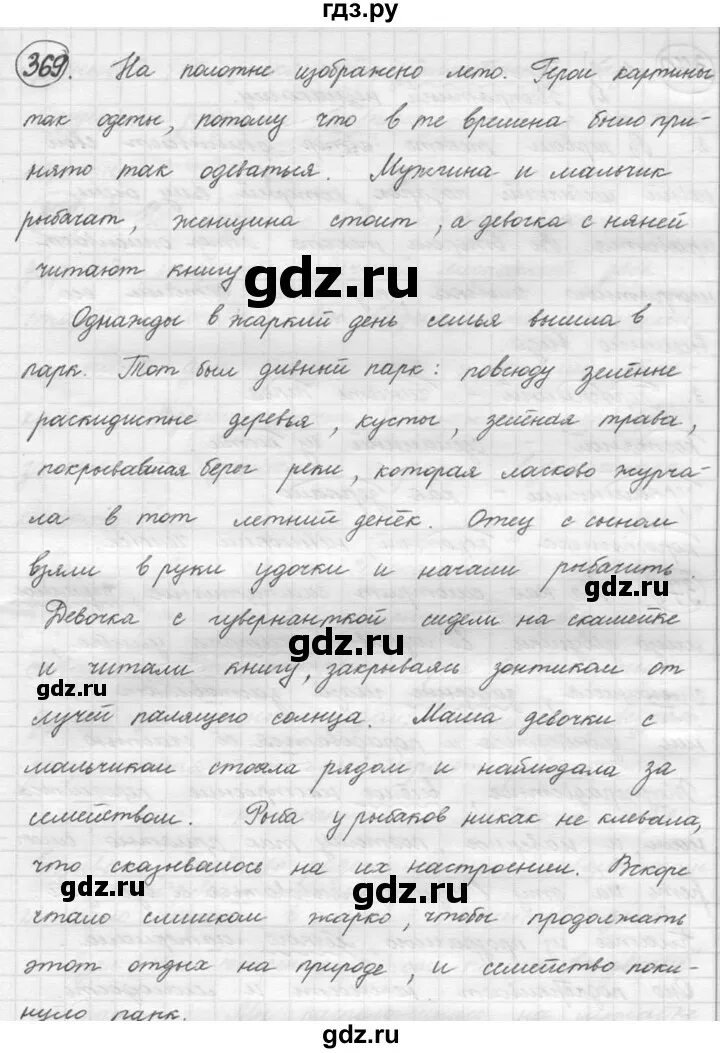 гдз.ру
369. На полотне изображено лето. Герои картины
так одеты, потому что в те времена было при-
нято так одеваться. Мужчина и мальчик
рыбачат, женщина стоит, а девочка с няней
читают книгу
gdz.ru
Однажды в жаркий день семья вышла в
парк. Тот был дивный парк: повсюду зелёные
раскидистые деревья, кусты, зелёная трава,
покрывавшая берег реки, которая ласково журча-
ла в тот летний денёк. Отец с сыном
взяли в руки удочки и начали рыбачить.
gdz.ru
Девочка с гувернанткой сидели на скамейке
gdz.ru
и читали книгу, закрываясь зонтиком от
gdz.ru
лучей палящего солнца. Мама девочки с
мальчиком стояла рядом и наблюдала за
семейством. Рыба у рыбаков никак не клевала,
что сказывалось на их настроении. Вскоре
gdz.ru
gdz.ru
стало слишком жарко, чтобы продолжать
этот отдых на природе, и семейство поки-
нуло парк.
gdz.ru
gdz.ru